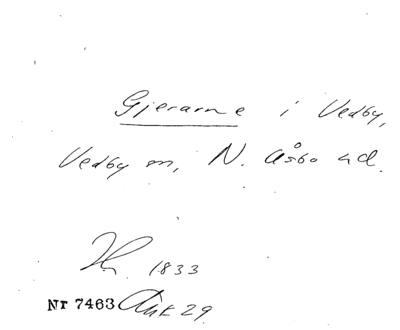 Gjerarne i Vedby,
Vedby sn, N. Åsbo hd.
1833
Nr 7463 Ank 29